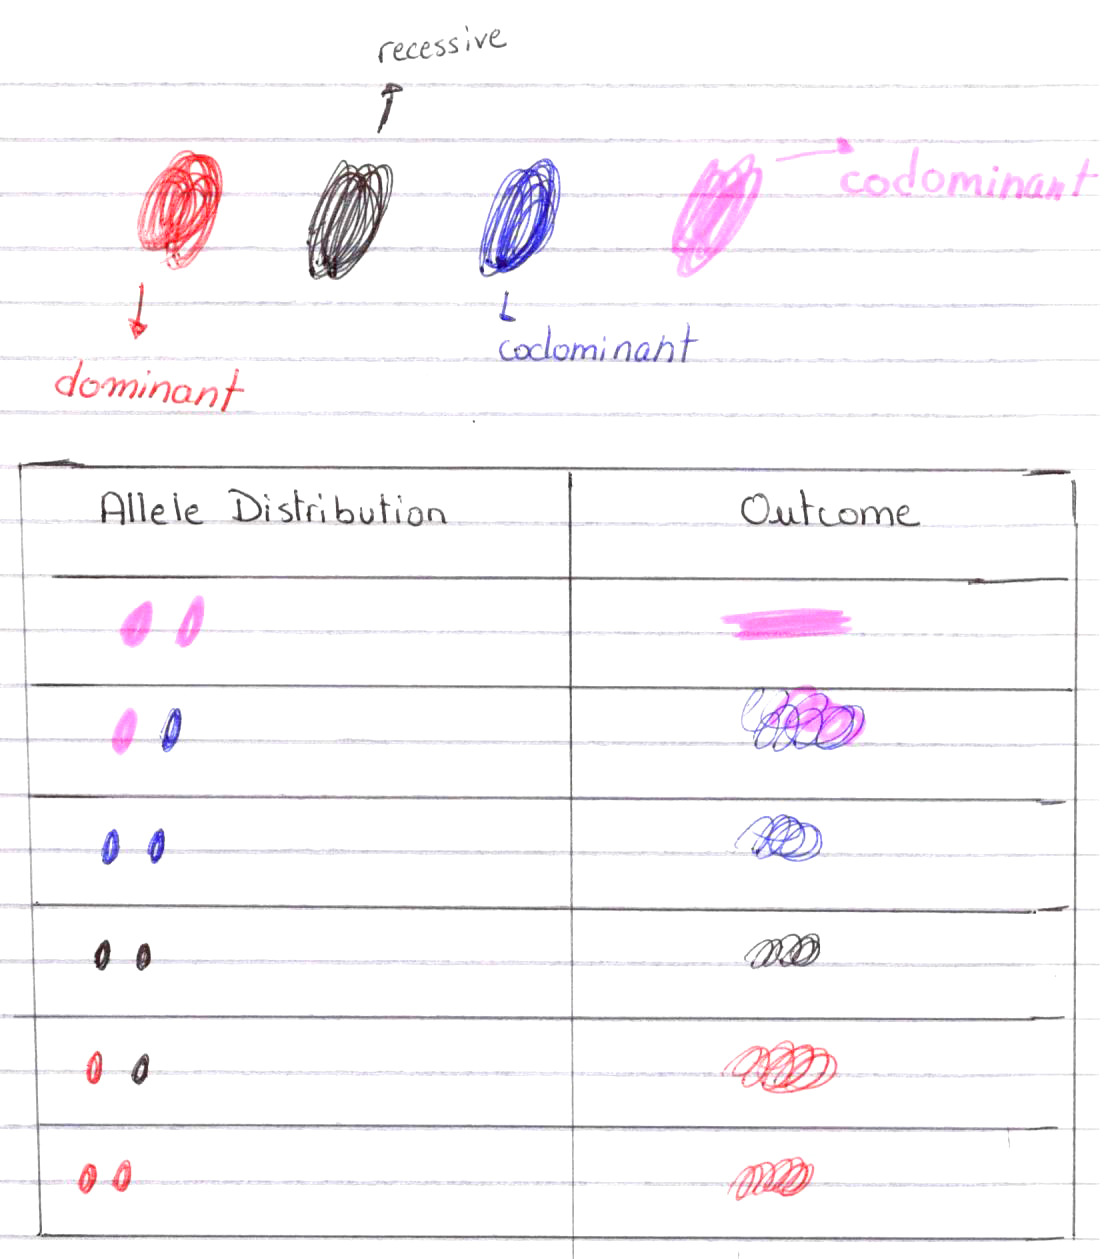 recessive
codominant
codominant
dominant
Allele Distribution
Outcome